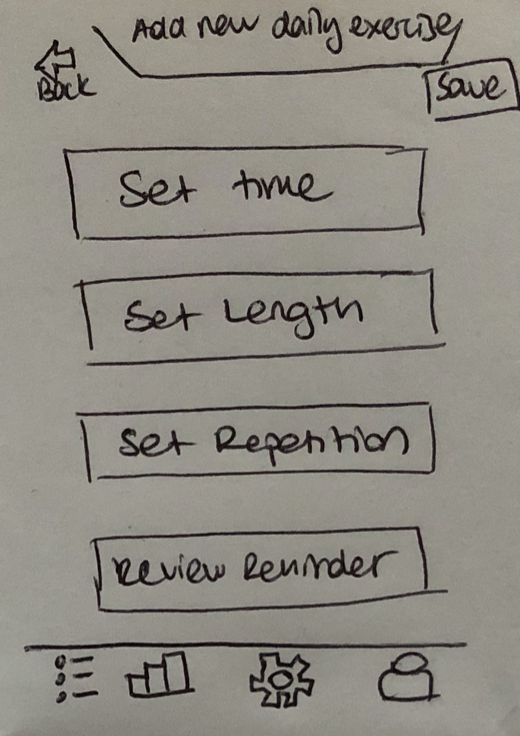 Add new daily exercise
Back
Save
Set time
Set Length
Set Repetition
Review Reminder